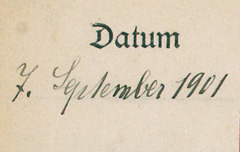 Datum
7. September 1901